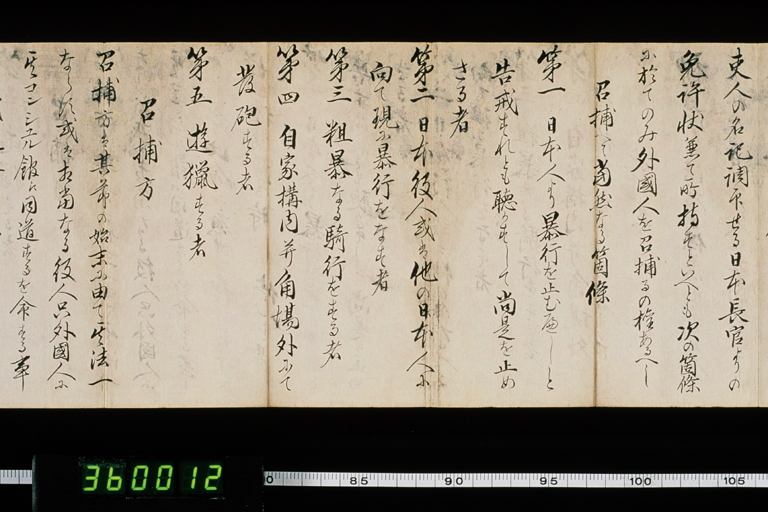 吏人の名記調印せる日本長官よりの
免許状無て所持せすといへとも次の箇條
に於てのみ外國人を召捕るの権あるへし
召捕て當然なる箇條
第一 日本人より暴行を止む可しと
告戒すれとも聴かすして尚是を止め
さる者
第二 日本役人或は他の日本人に
向て現に暴行をなす者
第三 粗暴なる騎行をする者
第四 自家構内并角場外にて
發砲する者
第五 遊猟する者
召捕方
召捕方は其節の始末に由て其法一
ならす或は相當なる役人只外國人に
其コンシュル館に同道するを命する事
360012
85 90 95 100 105